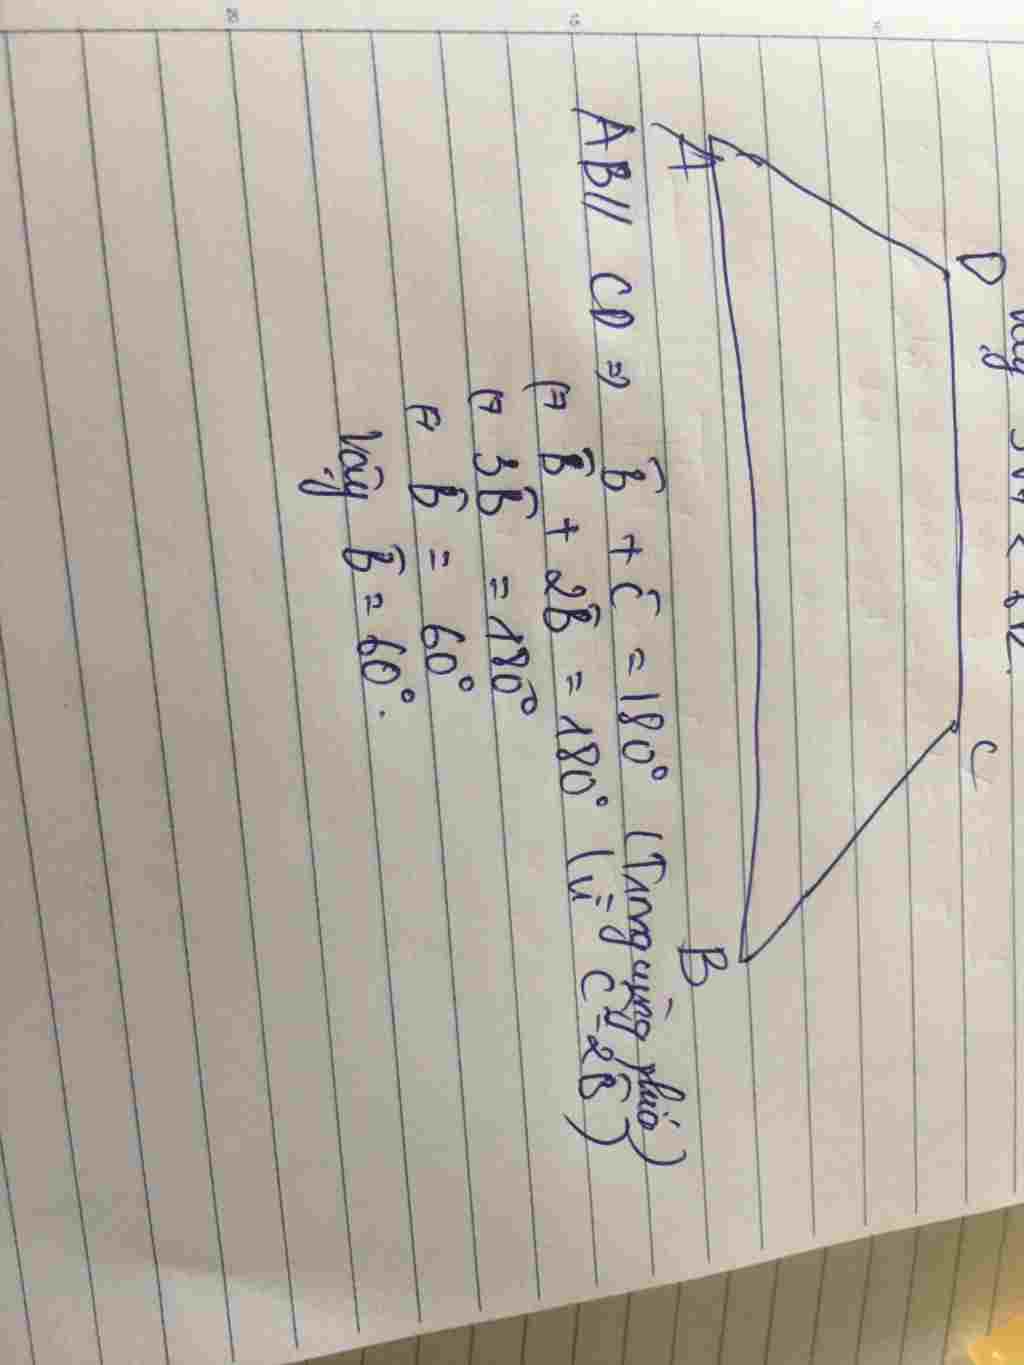 Vậy
D C
A B
AB // CD ⇒ B̂ + Ĉ = 180° (Trong cùng phía)
⇔ B̂ + 2B̂ = 180° (vì Ĉ = 2B̂)
⇔ 3B̂ = 180°
⇔ B̂ = 60°
Vậy B̂ = 60°.